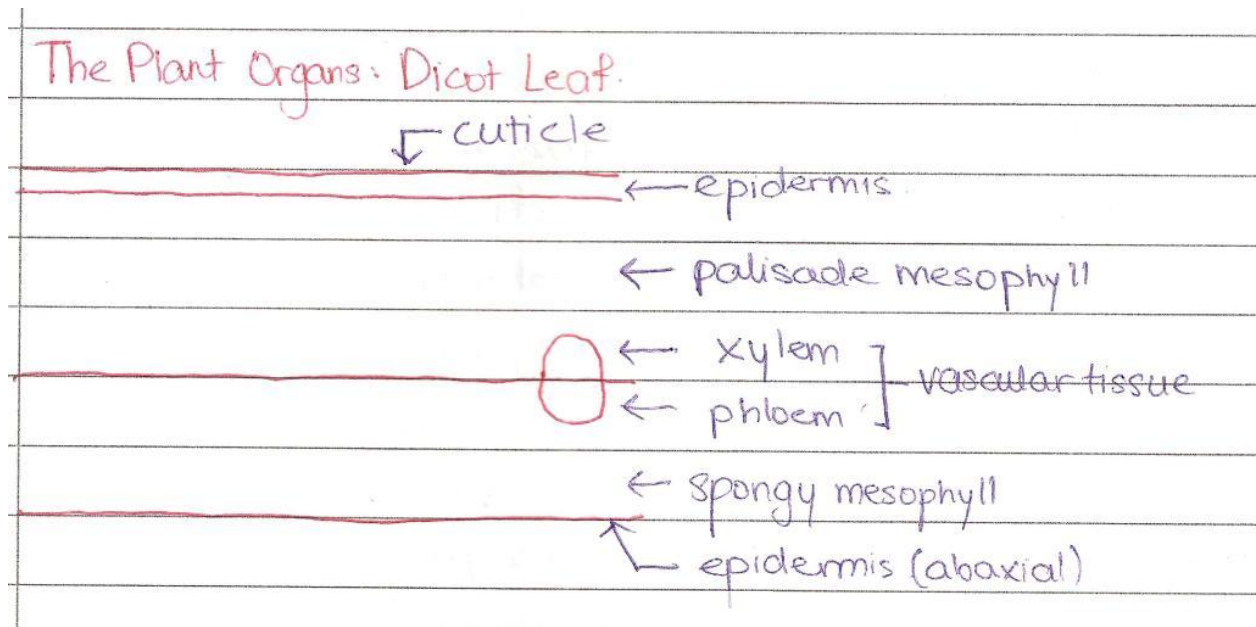 The Plant Organs: Dicot Leaf.
cuticle
epidermis
palisade mesophyll
xylem
vascular tissue
phloem
spongy mesophyll
epidermis (abaxial)